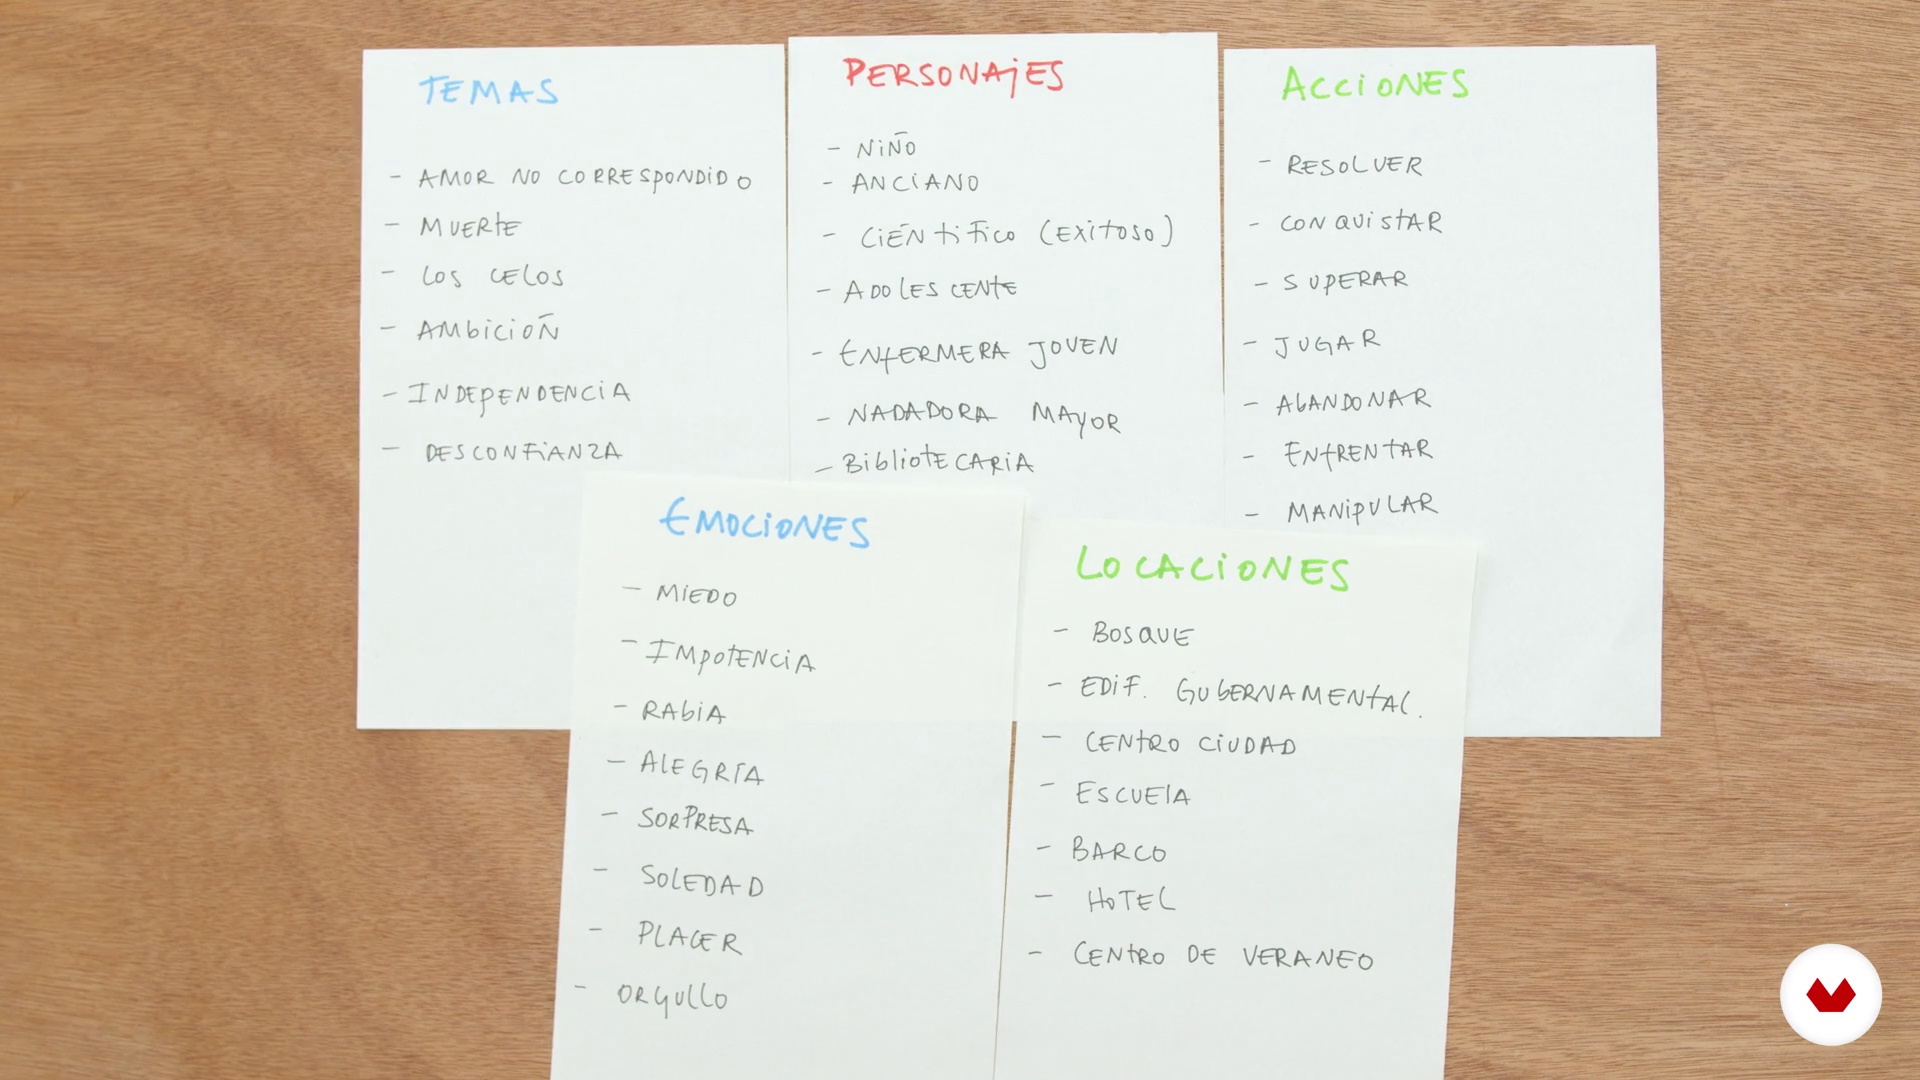 TEMAS
- AMOR NO CORRESPONDIDO
- MUERTE
- LOS CELOS
- AMBICIÓN
- INDEPENDENCIA
- DESCONFIANZA
PERSONAJES
- NIÑO
- ANCIANO
- CIENTIFICO (EXITOSO)
- ADOLESCENTE
- ENFERMERA JOVEN
- NADADORA MAYOR
- BIBLIOTECARIA
ACCIONES
- RESOLVER
- CONQUISTAR
- SUPERAR
- JUGAR
- ABANDONAR
- ENFRENTAR
- MANIPULAR
EMOCIONES
- MIEDO
- IMPOTENCIA
- RABIA
- ALEGRÍA
- SORPRESA
- SOLEDAD
- PLACER
- ORGULLO
LOCACIONES
- BOSQUE
- EDIF. GUBERNAMENTAL.
- CENTRO CIUDAD
- ESCUELA
- BARCO
- HOTEL
- CENTRO DE VERANEO